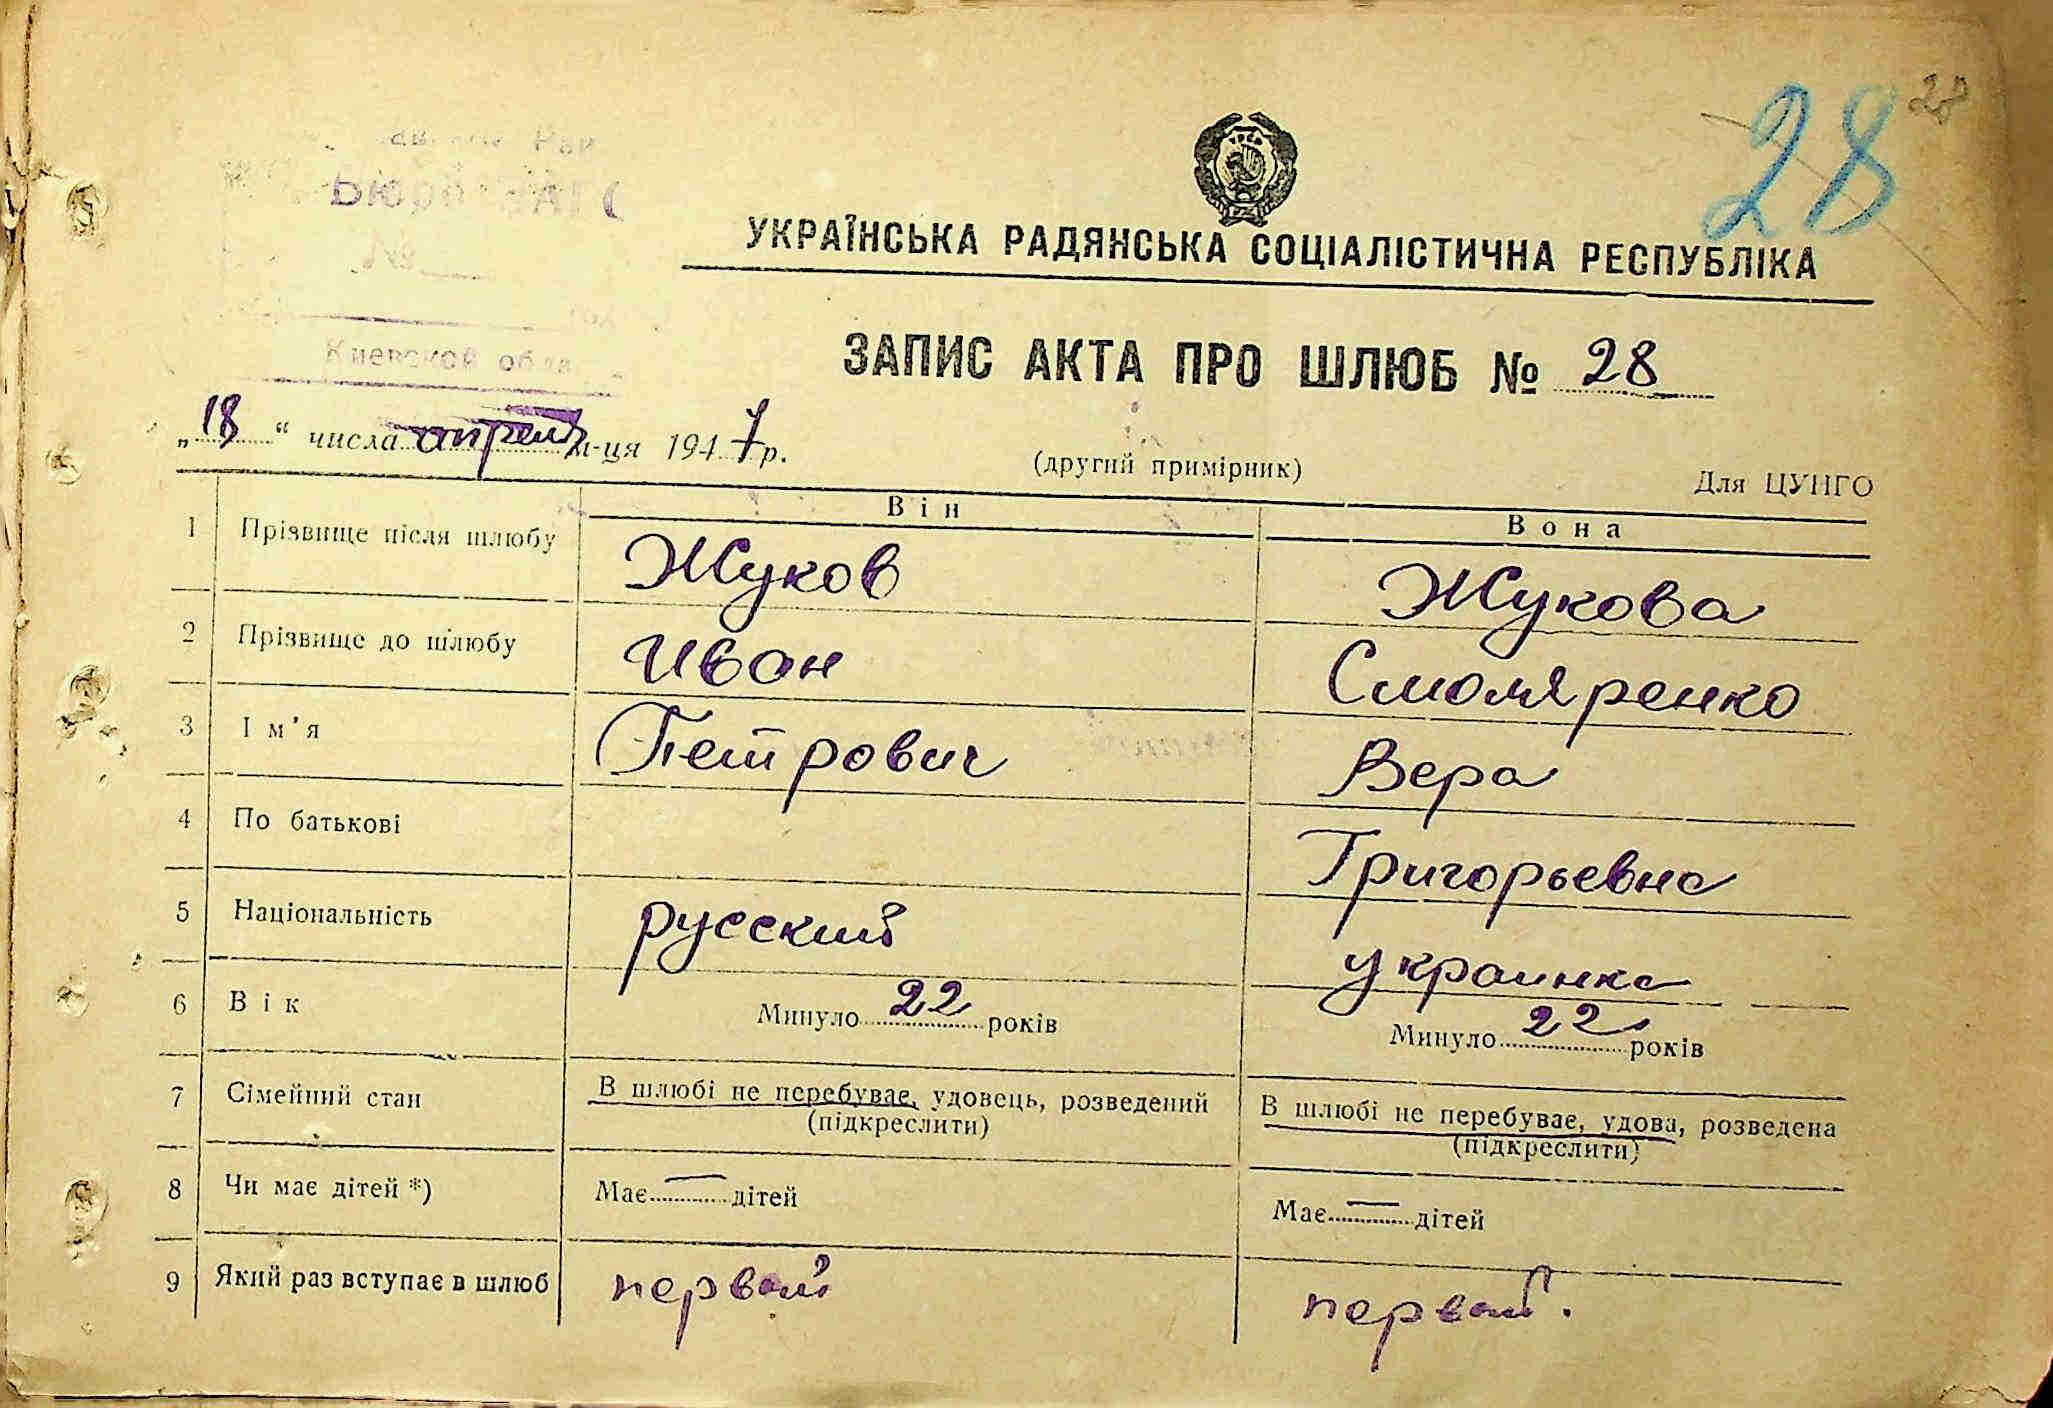 28
28
УКРАЇНСЬКА РАДЯНСЬКА СОЦІАЛІСТИЧНА РЕСПУБЛІКА
Киевской
ЗАПИС АКТА ПРО ШЛЮБ № 28
„18“ числа апреля м-ця 1947 р.
(другий примірник)
Для ЦУНГО
Він
Вона
1 Прізвище після шлюбу Жуков Жукова
2 Прізвище до шлюбу Иван Смоляренко
3 Ім'я Петрович Вера
4 По батькові Григорьевна
5 Національність русский украинка
6 Вік Минуло 22 років Минуло 22 років
7 Сімейний стан В шлюбі не перебуває, удовець, розведений В шлюбі не перебуває, удова, розведена
(підкреслити) (підкреслити)
8 Чи має дітей *) Має — дітей Має — дітей
9 Який раз вступає в шлюб первый первый.